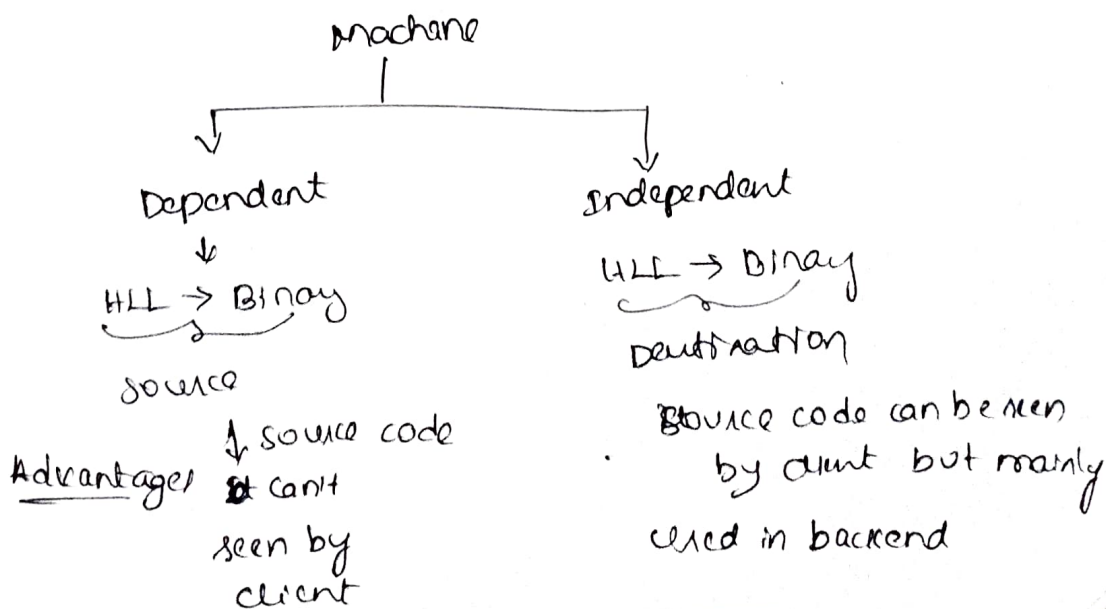 Machine
Dependent
HLL → Binary
source
↓ source code
Advantages can't
seen by
client
Independent
HLL → Binary
Destination
source code can be seen
by client but mainly
used in backend